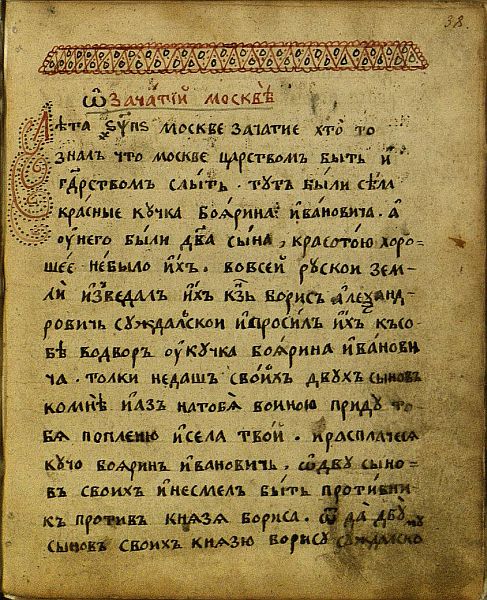 38.
Ѡ ЗАЧАТІЙ МОСКВѢ
Лѣта ҂ѕ҃ѱ҃ѕ москве зачатие хто то
зналъ что москве царствомъ быть и҆
гд҃рствомъ слыть. тутъ были се́ла
красные кучка боѧрина и҆вановича. а҆
оу҆него были два сына, красотою хоро-
шее небыло и҆хъ. вовсей рускои зем-
ли и҆зведалъ и҆хъ кн҃зь борисъ а҆леѯанд-
ровичь суждалскои и҆просилъ и҆хъ късо-
бѣ водворъ оу҆кучка боѧрина и҆ванови
ча. толки недашъ свои҆хъ двухъ сыновъ
комнѣ и҆азъ натобѧ воиною приду то-
бѧ попленю и҆села твои҆. и҆расплачесѧ
кучо боѧринъ и҆вановичь. ѿдву сыно-
въ своихъ и҆несмелъ быть противни-
къ противъ кнѧзѧ бориса. ѿда двꙋмꙋ
сыновъ своихъ кнѧзю борису суждалско